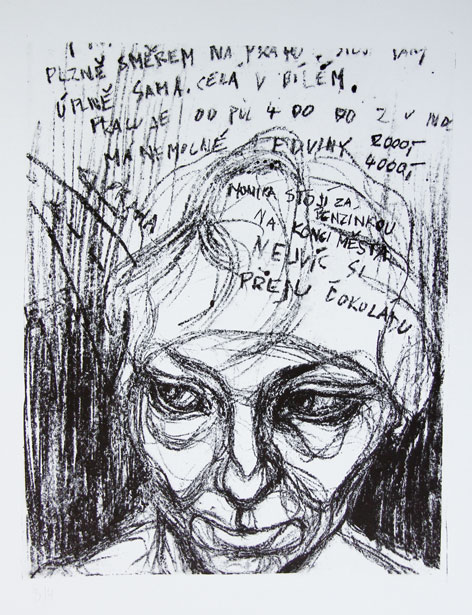 PLZNĚ SMĚREM NA PRAHU
ÚPLNĚ SAMA. CELÁ V BÍLÉM.
OD PŮL 4 DO DO 2 V NO
MÁ NEMOCNÉ 2000,-
EDVINK 4000,-
MONIKA STOJÍ ZA
BENZINKOU
NA KONCI MĚSTA
NEJVÍC SI
PŘEJU ČOKOLÁDU
3/4